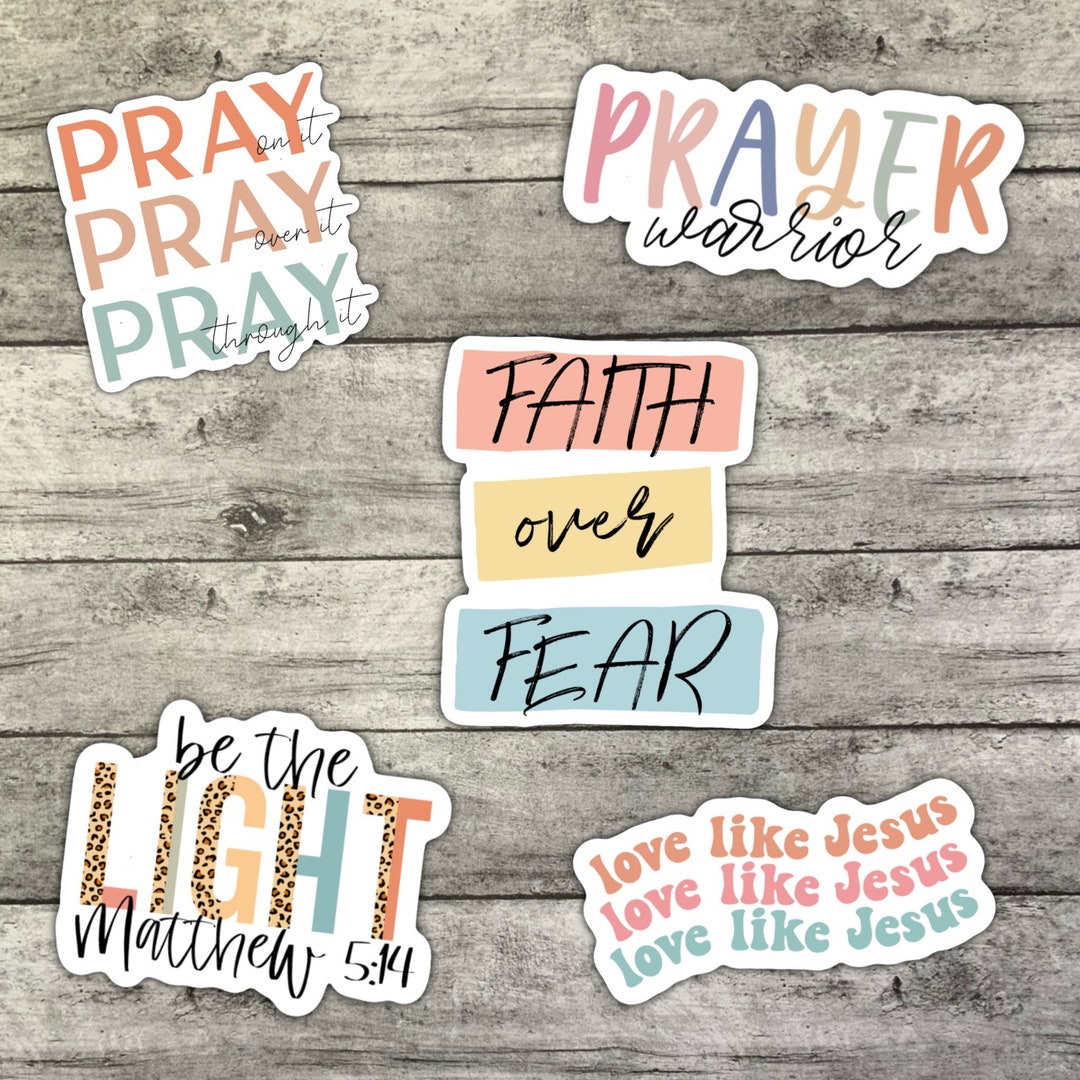 PRAY on it
PRAY over it
PRAY through it
PRAYER
warrior
FAITH
over
FEAR
be the
LIGHT
Matthew 5:14
love like Jesus
love like Jesus
love like Jesus